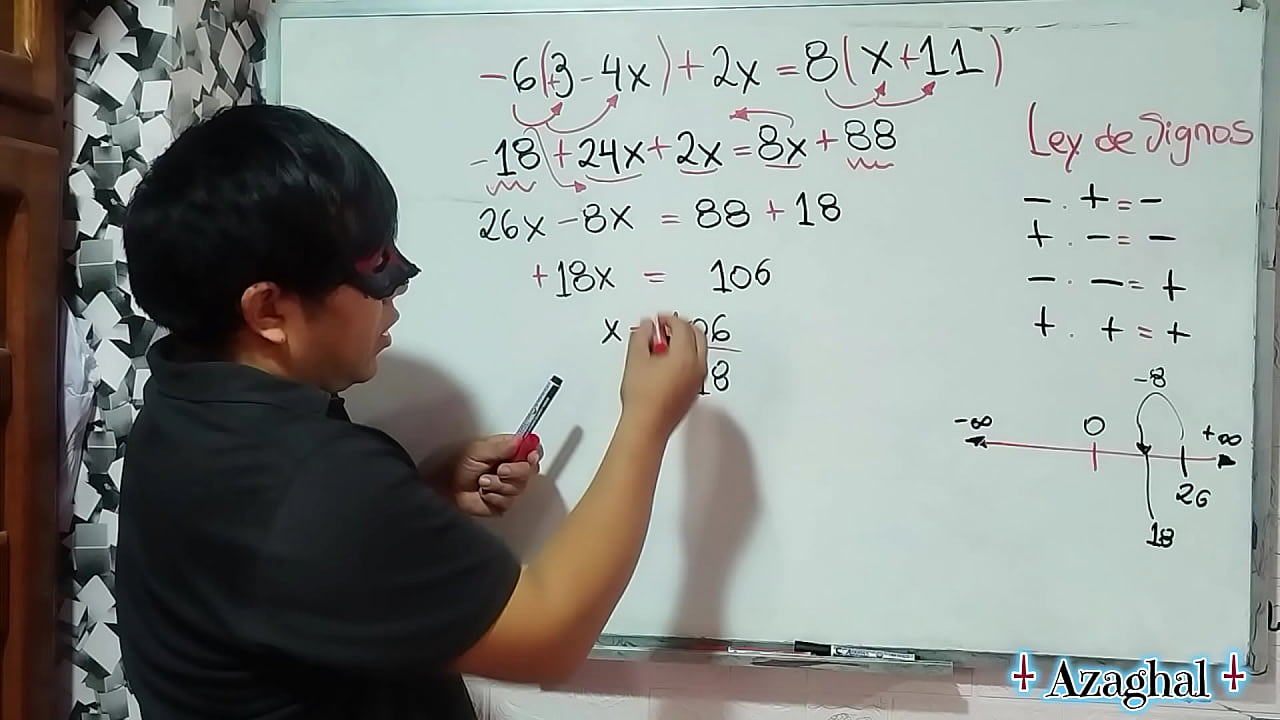 -6(+3-4x)+2x=8(x+11)
-18+24x+2x=8x+88
26x-8x = 88+18
+18x = 106
x
06
18
Ley de Signos
- . + = -
+ . - = -
- . - = +
+ . + = +
-8
-∞ 0 +∞
26
18
Azaghal